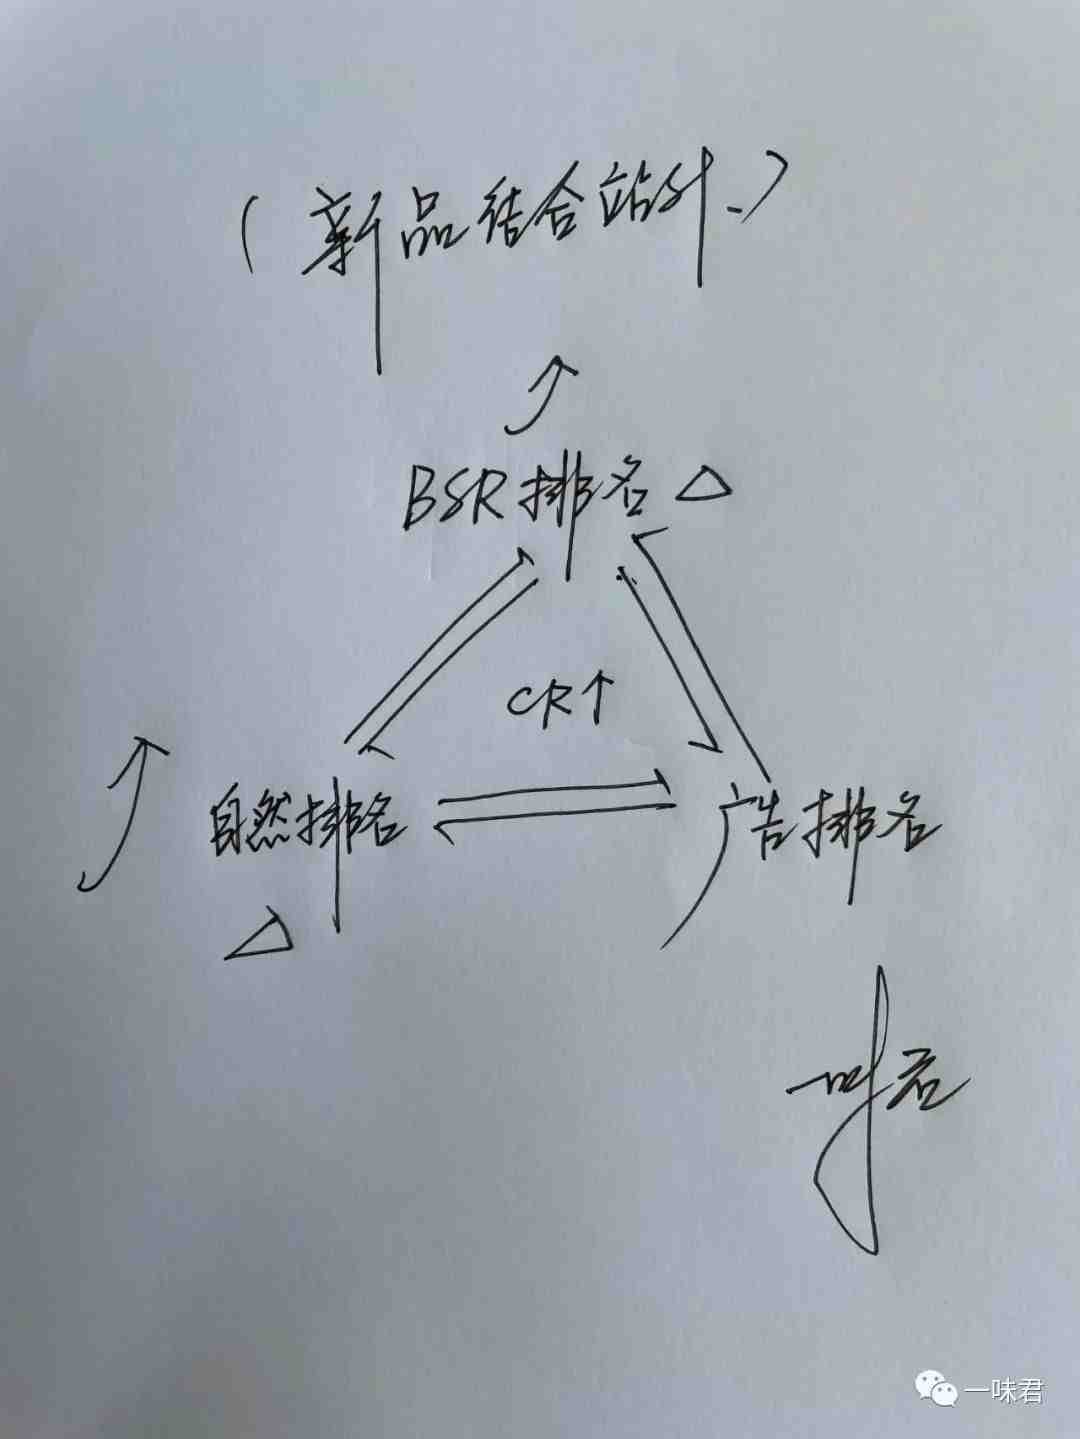 （新品结合站外）
BSR排名
CR↑
自然排名
广告排名
一味君
一味君